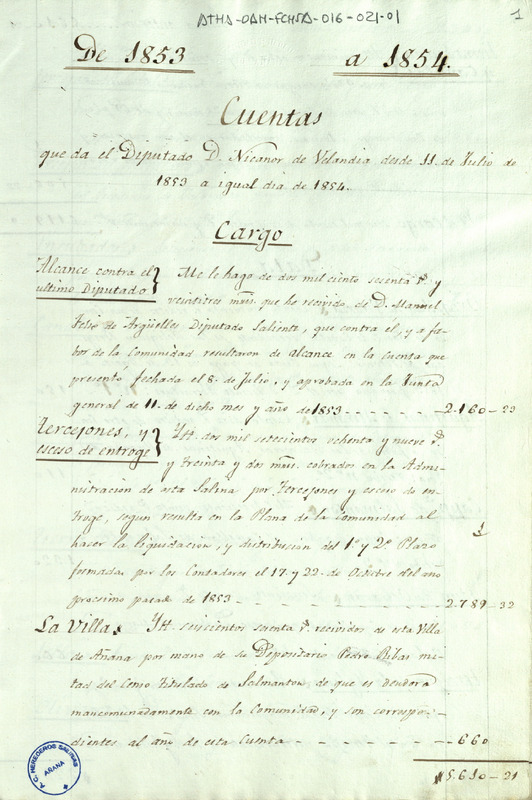 ATHA-DAH-FCHSA-016-021-01
1
De 1853 a 1854.
Cuentas
que da el Diputado D. Nicanor de Velandia desde 11 de Julio de
1853 a igual dia de 1854.
Cargo
Alcance contra el
ultimo Diputado
Me le hago de dos mil ciento sesenta r.s y
veintitres mâis. que he recivido de D. Manuel
Felix de Argüelles Diputado Saliente, que contra el, y a fa-
bor de la Comunidad resultaron de alcance en la cuenta que
presentó fechada el 8 de Julio, y aprobada en la Junta
general de 11 de dicho mes y año de 1853 - - - - - - 2.160 - 23
Tercejones, y
esceso de entroge
Ytt. dos mil setecientos ochenta y nueve r.s
y treinta y dos mâis. cobrados en la Admi-
nistracion de esta Salina por Tercejones y esceso de en-
troge, segun resulta en la Plana de la Comunidad al
hacer la liquidacion, y distribucion del 1.º y 2.º Plazo
formada por los Contadores el 17 y 22 de Octubre del año
procsimo pasado de 1853 - - - - - - 2.789 - 32
La Villa
Ytt. seiscientos sesenta r.s recividos de esta Villa
de Añana por mano de su Depositario Pedro Ribas mi-
tad del Censo titulado de Salmanton de que es deudora
mancomunadamente con la Comunidad, y son correspon-
dientes al año de esta Cuenta - - - - - - 660
5.610 - 21
A.C. HEREDEROS SALINAS
AÑANA